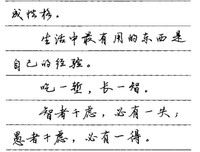 成性格。
生活中最有用的东西是
自己的经验。
吃一堑，长一智。
智者千虑，必有一失；
愚者千虑，必有一得。